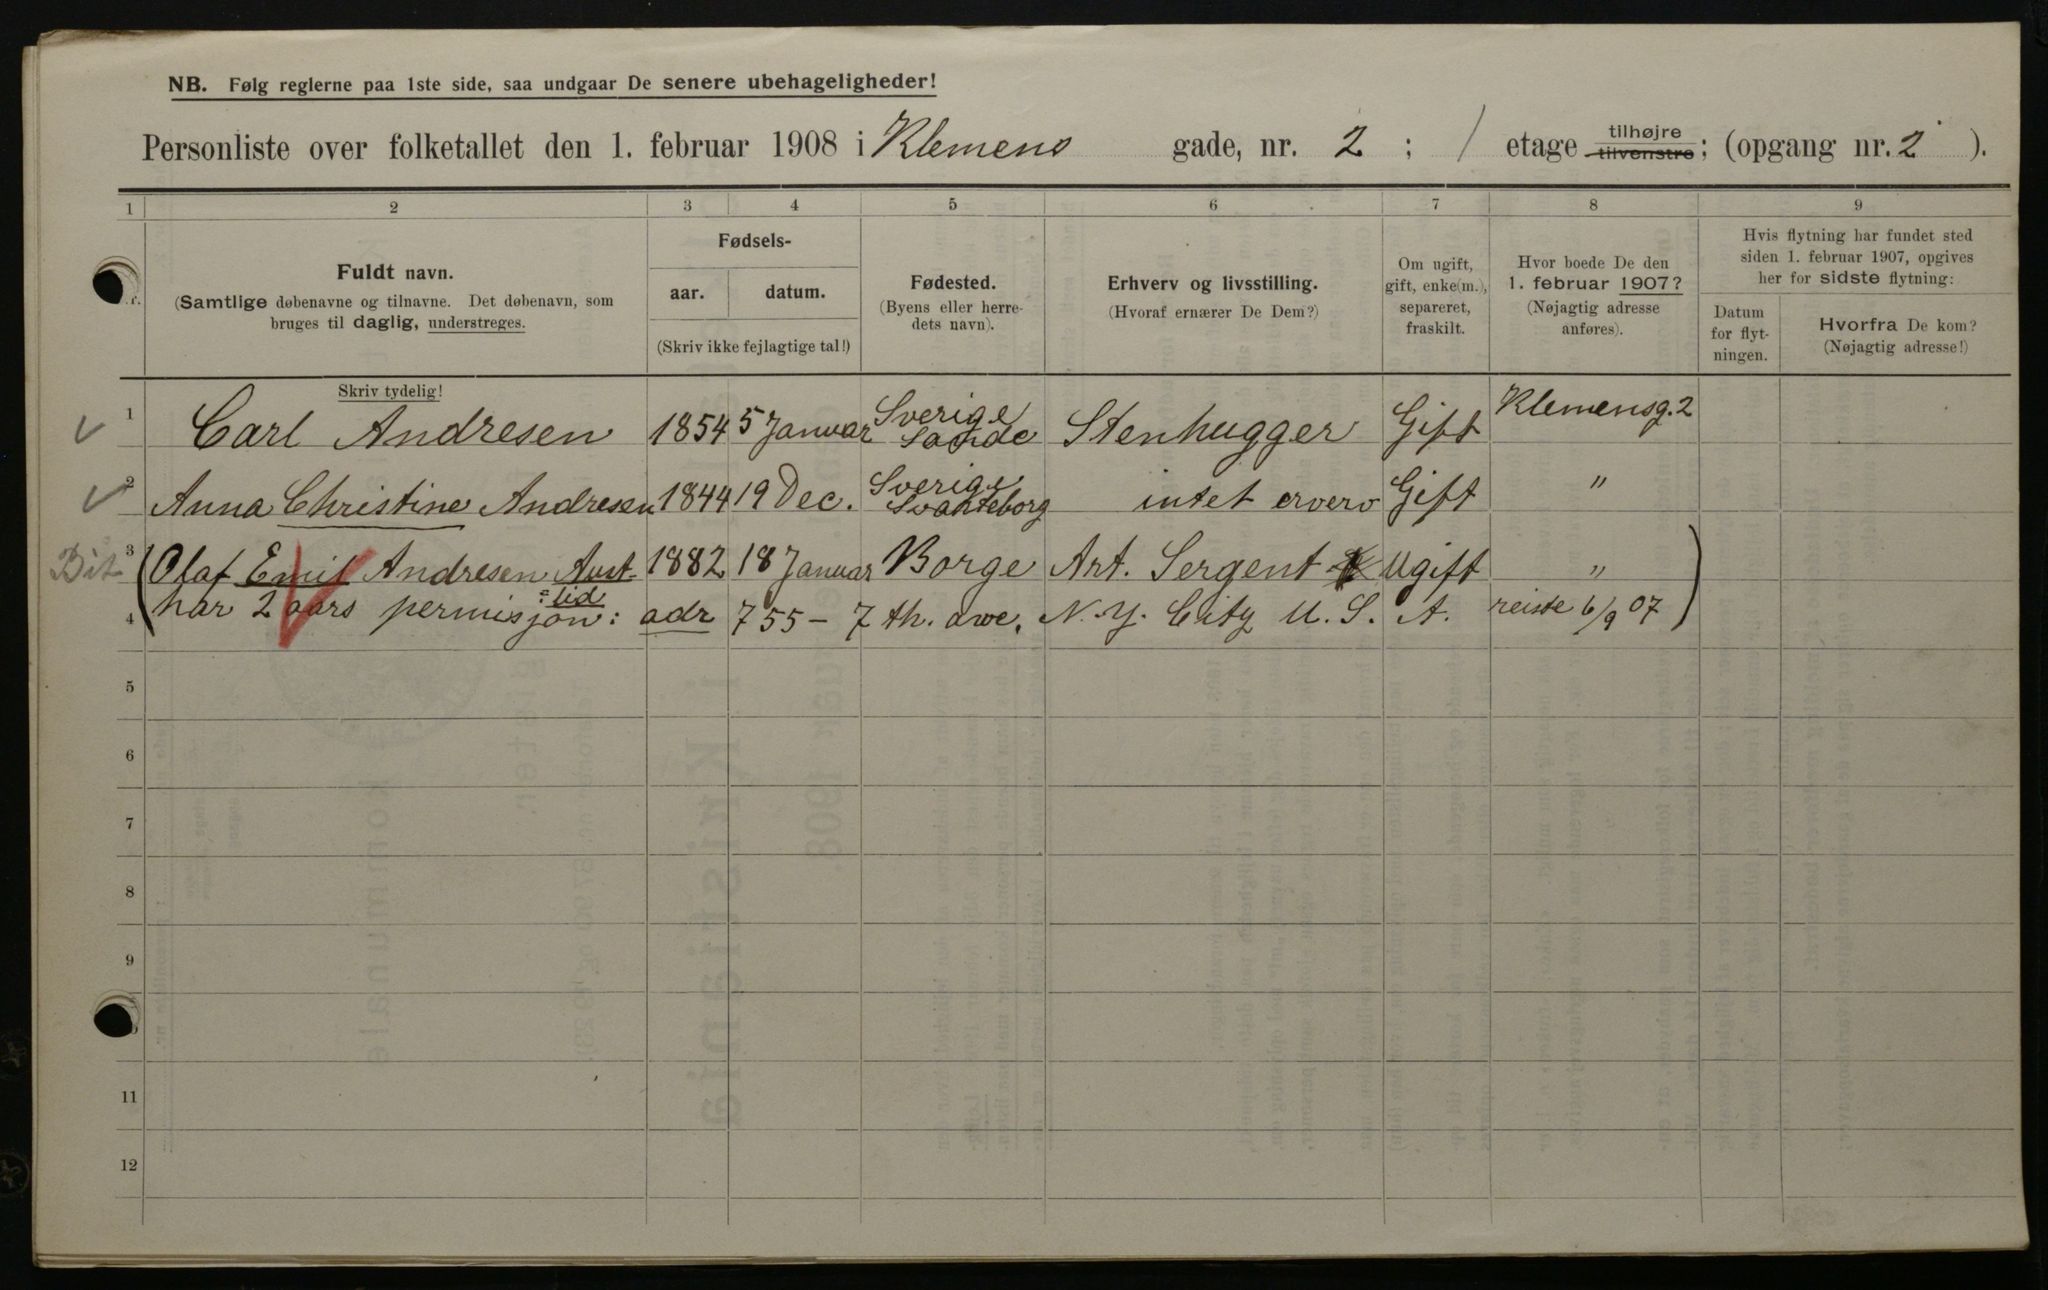 NB. Følg reglerne paa 1ste side, saa undgaar De senere ubehageligheder!
Personliste over folketallet den 1. februar 1908 i Klemens gade, nr. 2 ; / etage tilhøjre tilvenstre ; (opgang nr. 2 ).
1 2 3 4 5 6 7 8 9
Fuldt navn.
(Samtlige døbenavne og tilnavne. Det døbenavn, som
bruges til daglig, understreges.
Skriv tydelig!
Fødsels-
aar. datum.
(Skriv ikke fejlagtige tal!)
Fødested.
(Byens eller herre-
dets navn).
Erhverv og livsstilling.
(Hvoraf ernærer De Dem?)
Om ugift,
gift, enke(m.),
separeret,
fraskilt.
Hvor boede De den
1. februar 1907?
(Nøjagtig adresse
anføres).
Hvis flytning har fundet sted
siden 1. februar 1907, opgives
her for sidste flytning:
Datum
for flyt-
ningen.
Hvorfra De kom?
(Nøjagtig adresse!)
1 Carl Andresen 1854 5 Januar Sverige Stenhugger Gift Klemensg. 2
2 Anna Christine Andresen 1844 19 Dec. Sverige Svarteborg intet erverv Gift "
3 (Olaf Emil Andresen Aust- 1882 18 Januar Borge Art. Sergent Ugift " )
lid
4 har 2 aars permisjon: adr 755 - 7 th. awe. N. Y. City U. S. A. reiste 6/9 07
5
6
7
8
9
11
12